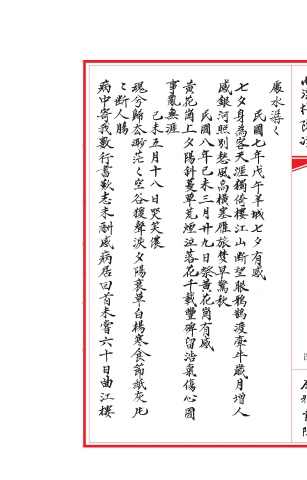 嚴水潺く
民國七年戊午羊城七夕有感
七夕身為客天涯獨倚樓江山斷望眼鴉鵲渡牽牛歲月增人
感銀河照別愁風高橫塞雁旅鬢早驚秋
民國八年己未三月廿九日祭黃花崗有感
黃花崗上夕陽斜蔓草荒煙泣落花千載豐碑留浩氣傷心國
事亂無涯
己未五月十八日哭笑儂
魂兮歸太渺茫く空谷猿聲淚夕陽衰草白楊寒食節紙灰飛
く斷人腸
病中寄我數行書歎志未酬感病居回首未嘗六十日曲江樓